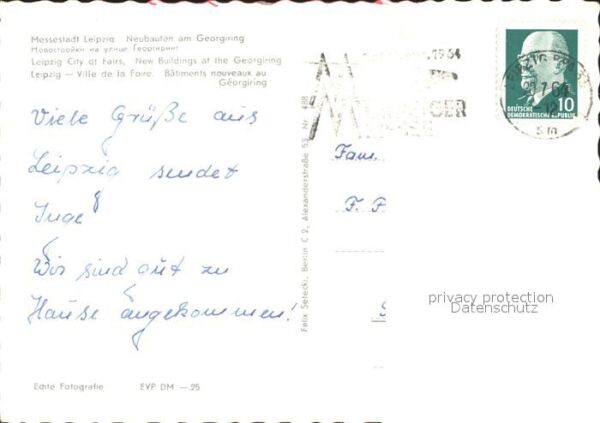 Messestadt Leipzig. Neubauten am Georgiring
Новостройки на улице Георгиринг
Leipzig City of Fairs, New Buildings of the Georgiring
Leipzig — Ville de la Foire. Bâtiments nouveaux au
Géorgiring
Viele Grüße aus
Leipzig sendet
Inge
Wir sind gut zu
Hause angekommen!
Echte Fotografie EVP DM —.25
Felix Setecki, Berlin C 2, Alexanderstraße 55 Nr. 488
1964
DEUTSCHE
DEMOKRATISCHE REPUBLIK
10
Fam.
F. P
privacy protection
Datenschutz